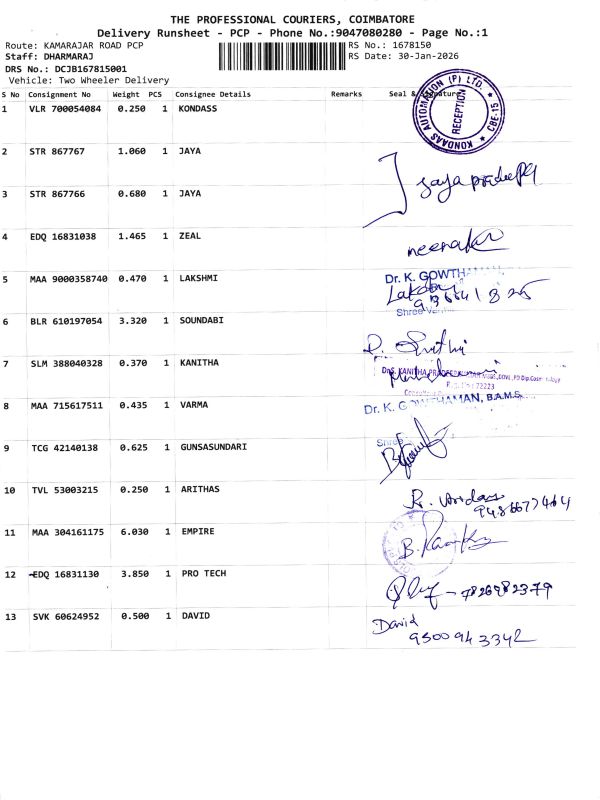 THE PROFESSIONAL COURIERS, COIMBATORE
Delivery Runsheet - PCP - Phone No.:9047080280 - Page No.:1
Route: KAMARAJAR ROAD PCP RS No.: 1678150
Staff: DHARMARAJ RS Date: 30-Jan-2026
DRS No.: DCJB167815001
Vehicle: Two Wheeler Delivery
S No Consignment No Weight PCS Consignee Details Remarks Seal & Signature
1 VLR 700054084 0.250 1 KONDASS
KONDAAS AUTOMATION (P) LTD. RECEPTION CBE-15
2 STR 867767 1.060 1 JAYA
3 STR 867766 0.680 1 JAYA
4 EDQ 16831038 1.465 1 ZEAL
5 MAA 9000358740 0.470 1 LAKSHMI
Dr. K. GOWTHAMAN
Shree
6 BLR 610197054 3.320 1 SOUNDABI
7 SLM 388040328 0.370 1 KANITHA
8 MAA 715617511 0.435 1 VARMA
Dr. K. GOWTHAMAN, B.A.M.S.
Shree
9 TCG 42140138 0.625 1 GUNSASUNDARI
10 TVL 53003215 0.250 1 ARITHAS
11 MAA 304161175 6.030 1 EMPIRE
12 EDQ 16831130 3.850 1 PRO TECH
7826982379
13 SVK 60624952 0.500 1 DAVID
David
9500943342